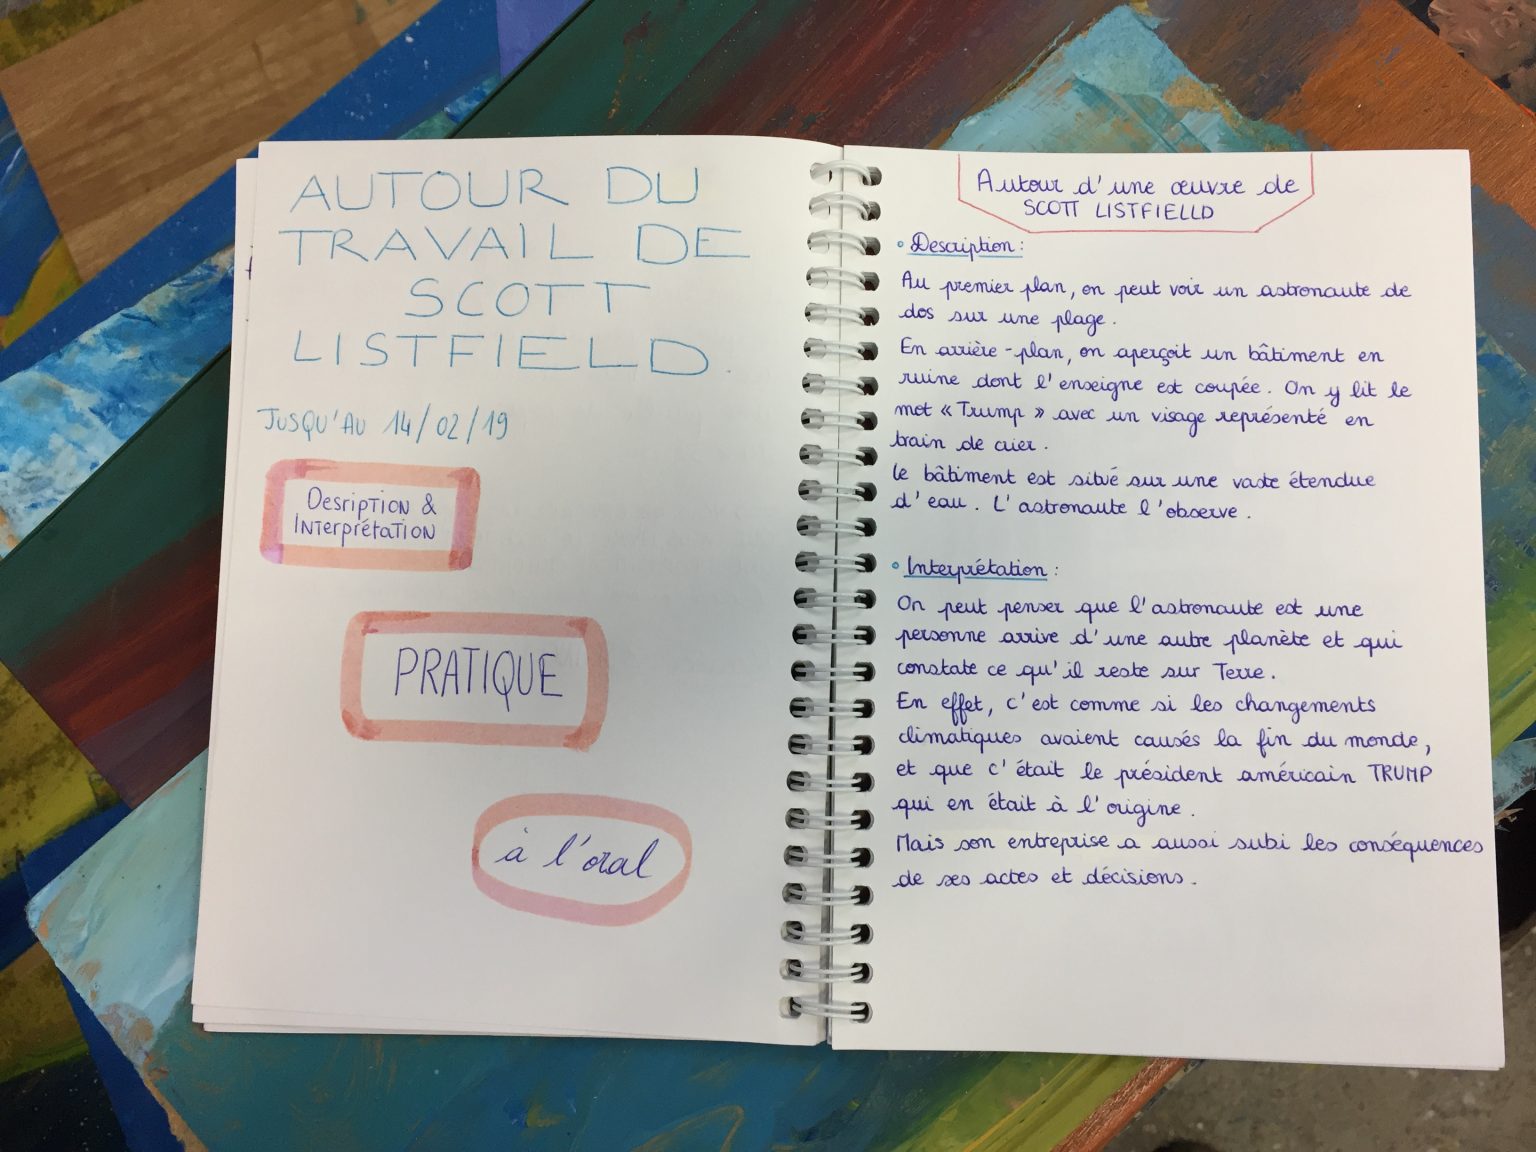 AUTOUR DU
TRAVAIL DE
SCOTT
LISTFIELD.
JUSQU'AU 14/02/19
Desription &
Interprétation
PRATIQUE
à l'oral
Autour d'une œuvre de
SCOTT LISTFIELLD
• Description :
Au premier plan, on peut voir un astronaute de
dos sur une plage.
En arrière-plan, on aperçoit un bâtiment en
ruine dont l'enseigne est coupée. On y lit le
mot « Trump » avec un visage représenté en
train de crier.
Le bâtiment est situé sur une vaste étendue
d'eau. L'astronaute l'observe.
• Interprétation :
On peut penser que l'astronaute est une
personne arrive d'une autre planète et qui
constate ce qu'il reste sur Terre.
En effet, c'est comme si les changements
climatiques avaient causés la fin du monde,
et que c'était le président américain TRUMP
qui en était à l'origine.
Mais son entreprise a aussi subi les conséquences
de ses actes et décisions.